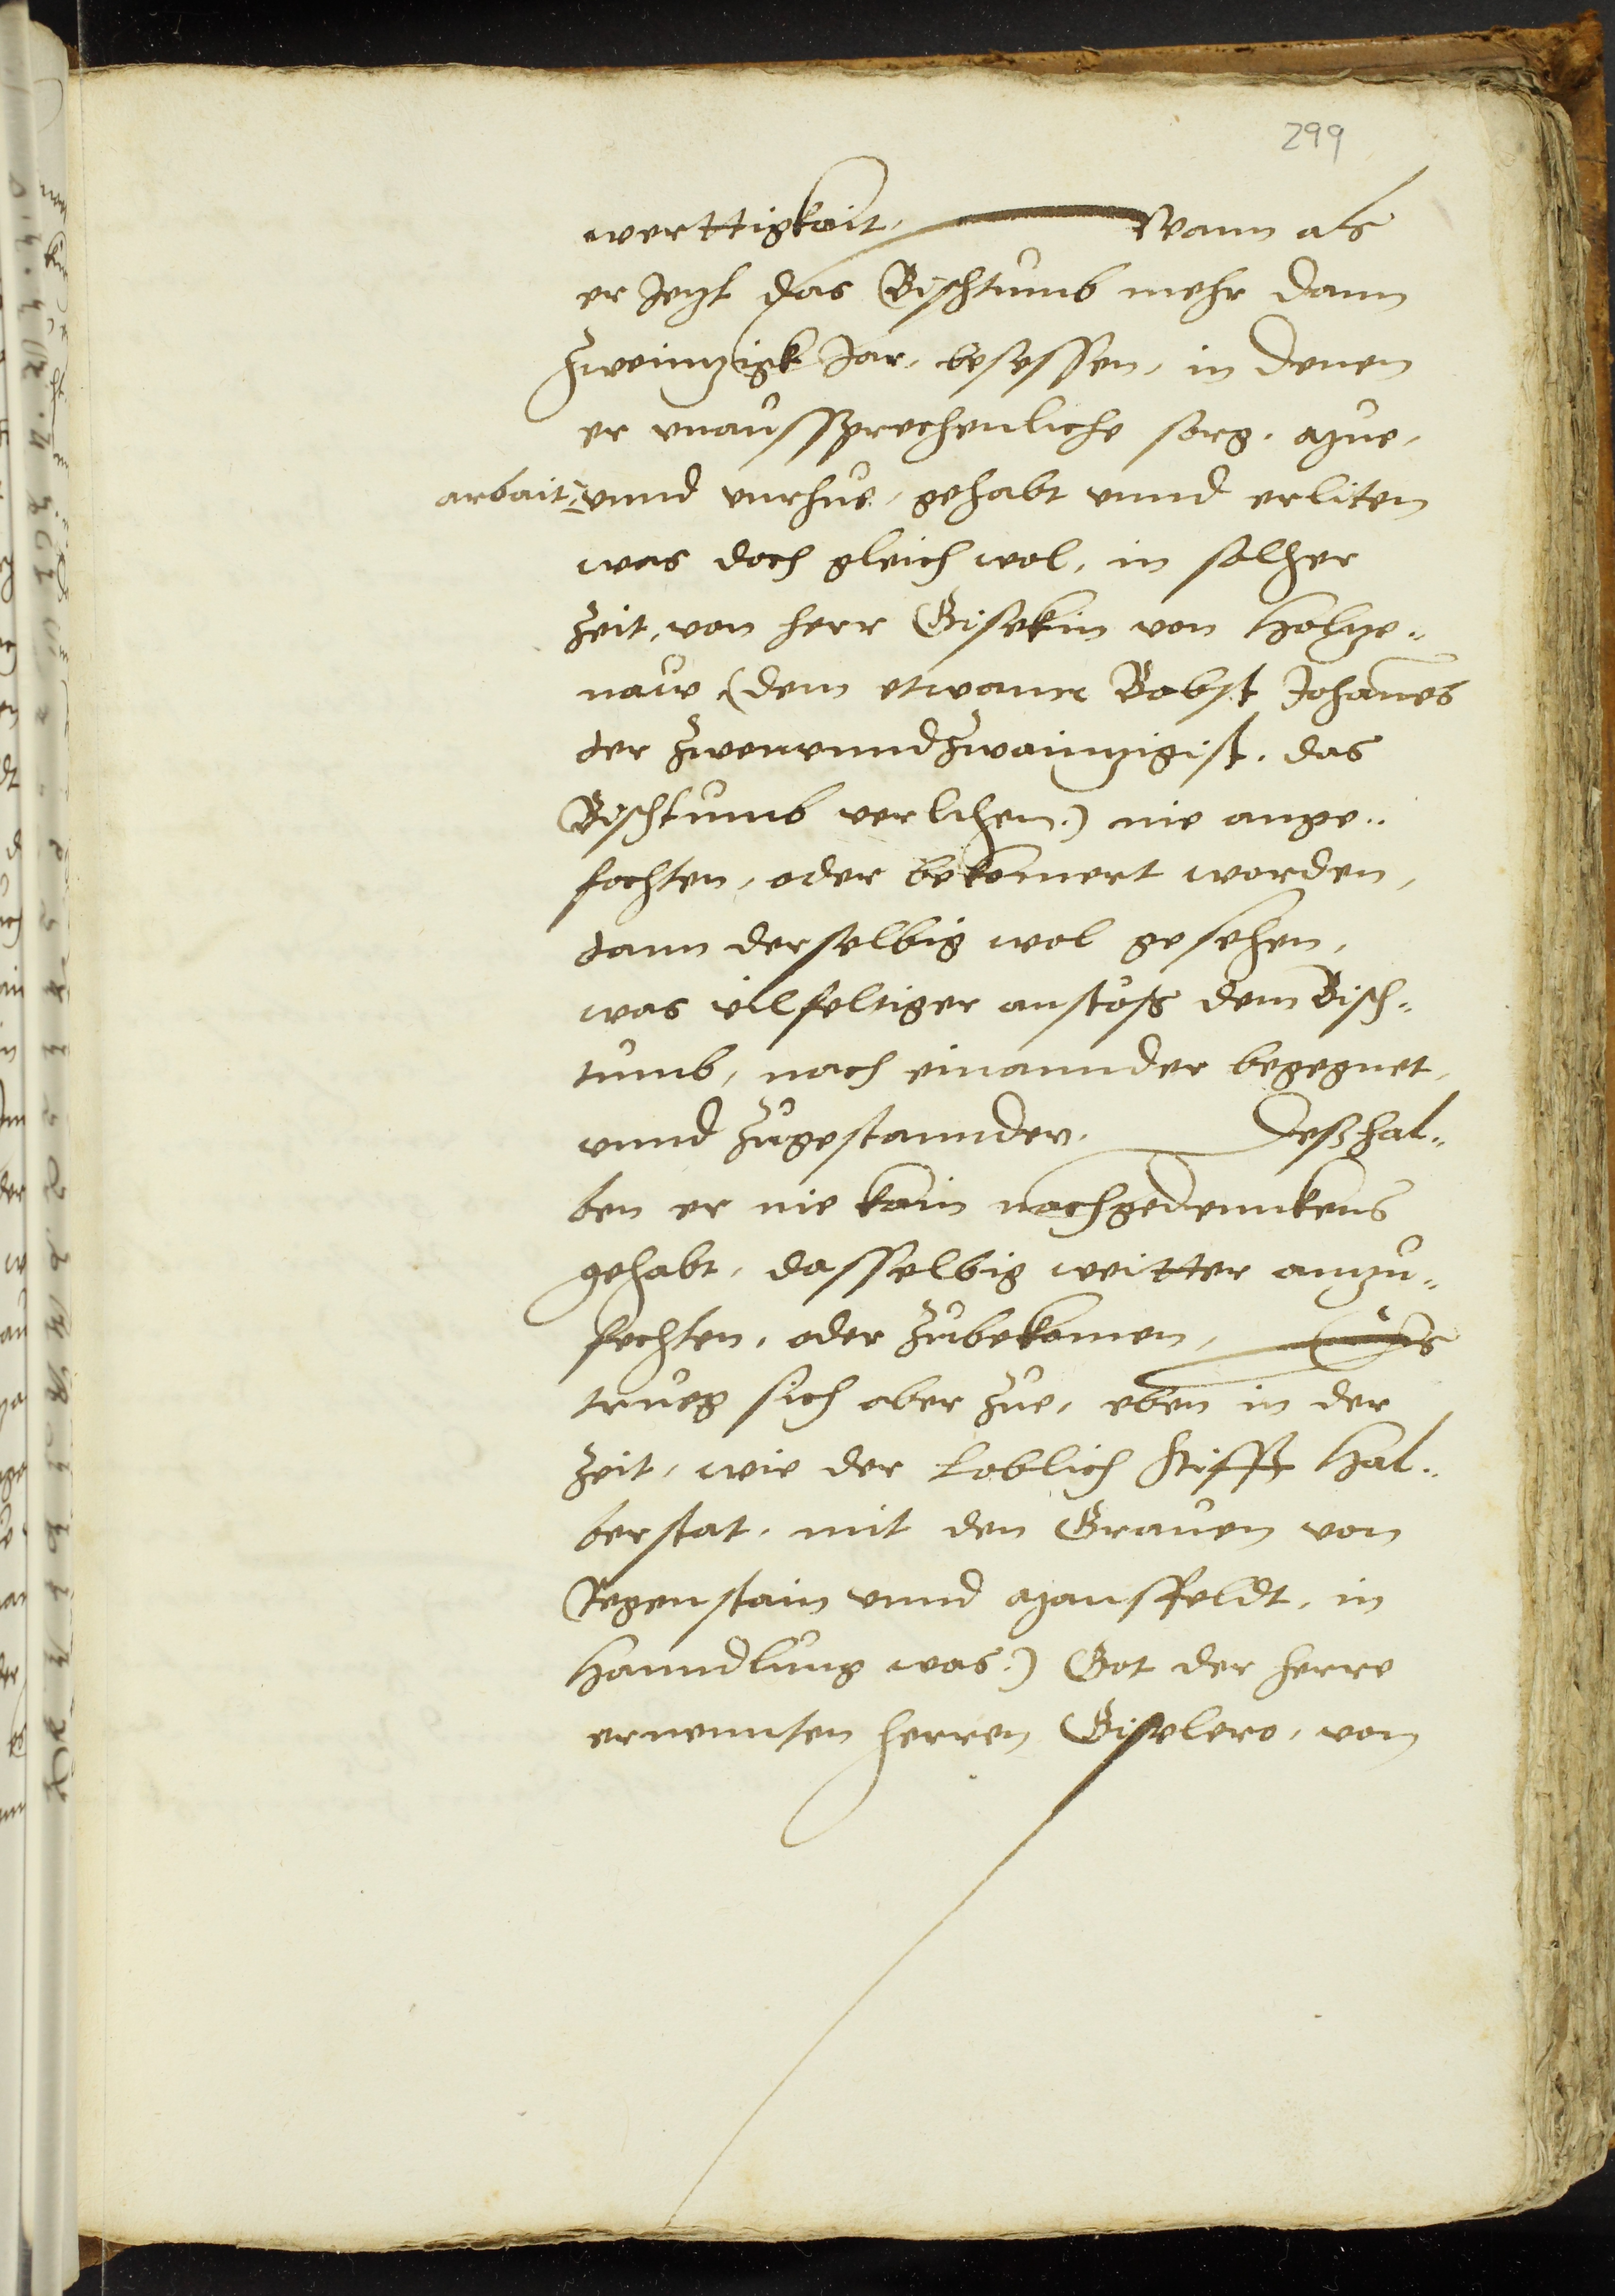 299
werttigkait, Wann als
er Jezt das Bischtumb mehr dann
zweinzigk Jar, besessen, in denen
er vnaussprechenliche sorg, mue,
arbait, vnnd vnrhue, gehabt vnnd erliten
was doch gleich wol, in solher
zeit, von herr Gisekin von Holtze-
naw (dem etwann Babst Johanes
der zwenvnndzwainzigist, das
Bischtumb verlichen) nie ange-
fochten, oder bekomert worden,
dann derselbig wol gesehen,
was vilfeltiger anstoß dem Bisch-
tumb, nach einannder begegnet,
vnnd zugestannden. Deßhal-
ben er nie kain nachgedennkens
gehabt, dasselbig weitter anzu-
fechten, oder zubekomen, Es
trueg sich aber zue, eben in der
zeit, wie der loblich Stifft Hal-
berstat, mit den Grauen von
Regenstain vnnd Mansfeldt, in
Hanndlung was) Got der herre
ernennten herren Giselero, von